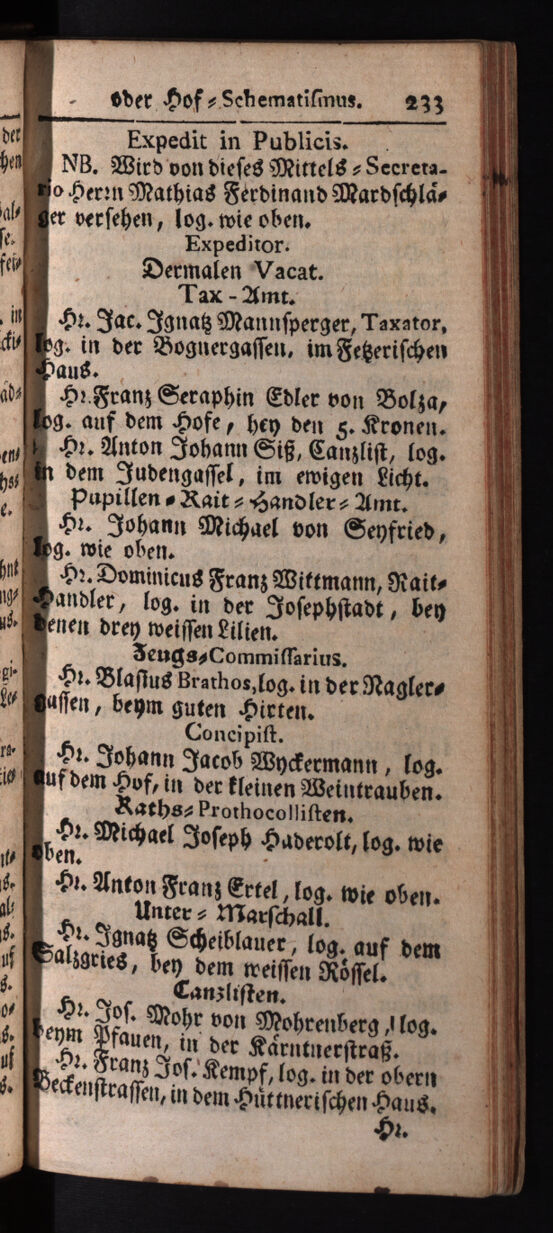 oder Hof-Schematismus. 233
Expedit in Publicis.
NB. Wird von dieses Mittels-Secreta-
rio Herrn Mathias Ferdinand Mardschlä-
ger versehen, log. wie oben.
Expeditor.
Dermalen Vacat.
Tax-Amt.
Hr. Jac. Ignatz Mannsperger, Taxator,
log. in der Bognergassen, im Fetzerischen
Haus.
Hr. Franz Seraphin Edler von Bolza,
log. auf dem Hofe, bey den 5. Kronen.
Hr. Anton Johann Siß, Canzlist, log.
in dem Judengassel, im ewigen Licht.
Pupillen-Rait-Handler-Amt.
Hr. Johann Michael von Seyfried,
log. wie oben.
Hr. Dominicus Franz Wittmann, Rait-
Handler, log. in der Josephstadt, bey
denen drey weissen Lilien.
Zeugs-Commissarius.
Hr. Blasius Brathos, log. in der Nagler-
gassen, beym guten Hirten.
Concipist.
Hr. Johann Jacob Wyckermann, log.
auf dem Hof, in der kleinen Weintrauben.
Raths-Prothocollisten.
Hr. Michael Joseph Haderolt, log. wie
oben.
Hr. Anton Franz Ertel, log. wie oben.
Unter-Marschall.
Hr. Ignatz Scheiblauer, log. auf dem
Salzgries, bey dem weissen Rössel.
Canzlisten.
Hr. Jos. Mohr von Mohrenberg, log.
beym Pfauen, in der Kärntnerstraß.
Hr. Franz Jos. Kempf, log. in der obern
Beckenstrassen, in dem Hüttnerischen Haus.
Hr.